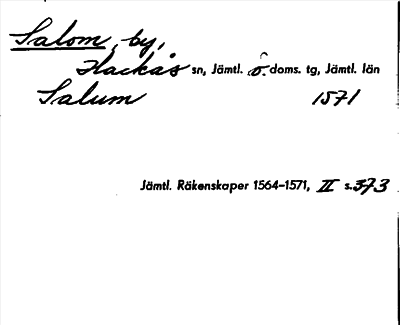 Salom, by,
Hackås sn, Jämtl. ö. doms. tg, Jämtl. län
Salum 1571
Jämtl. Räkenskaper 1564-1571, II s. 373